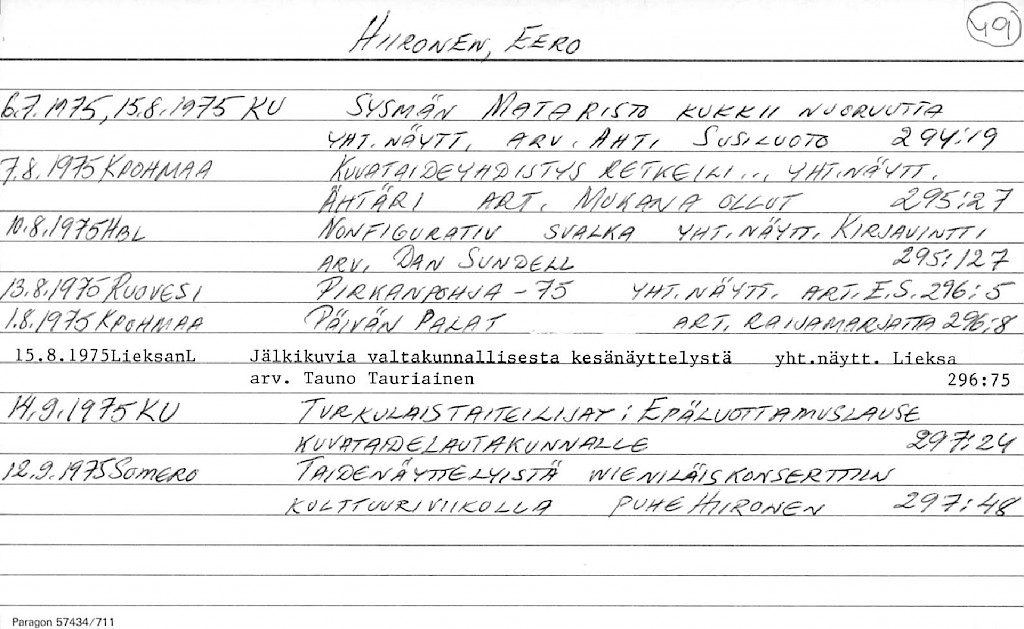 HIIRONEN, EERO
49
6.7.1975, 15.8.1975 KU SYSMÄN MATARISTO KUKKII NUORUUTTA
YHT.NÄYTT. ARV. AHTI SUSILUOTO 294:19
7.8.1975 KPOHMAA KUVATAIDEYHDISTYS RETKEILI... YHT.NÄYTT.
ÄHTÄRI ART. MUKANA OLLUT 295:27
10.8.1975 HBL NONFIGURATIV SVALKA YHT.NÄYTT. KIRJAVINTTI
ARV. DAN SUNDELL 295:127
13.8.1975 RUOVESI PIRKANPOHJA -75 YHT.NÄYTT. ART. E.S. 296:5
1.8.1975 KPOHMAA PÄIVÄN PALAT ART. RAIJAMARJATTA 296:8
15.8.1975LieksanL Jälkikuvia valtakunnallisesta kesänäyttelystä yht.näytt. Lieksa
arv. Tauno Tauriainen 296:75
14.9.1975 KU TURKULAISTAITEILIJAT: EPÄLUOTTAMUSLAUSE
KUVATAIDELAUTAKUNNALLE 297:24
12.9.1975 SOMERO TAIDENÄYTTELYISTÄ WIENILÄISKONSERTTIIN
KULTTUURIVIIKOLLA PUHE HIIRONEN 297:48
Paragon 57434/711